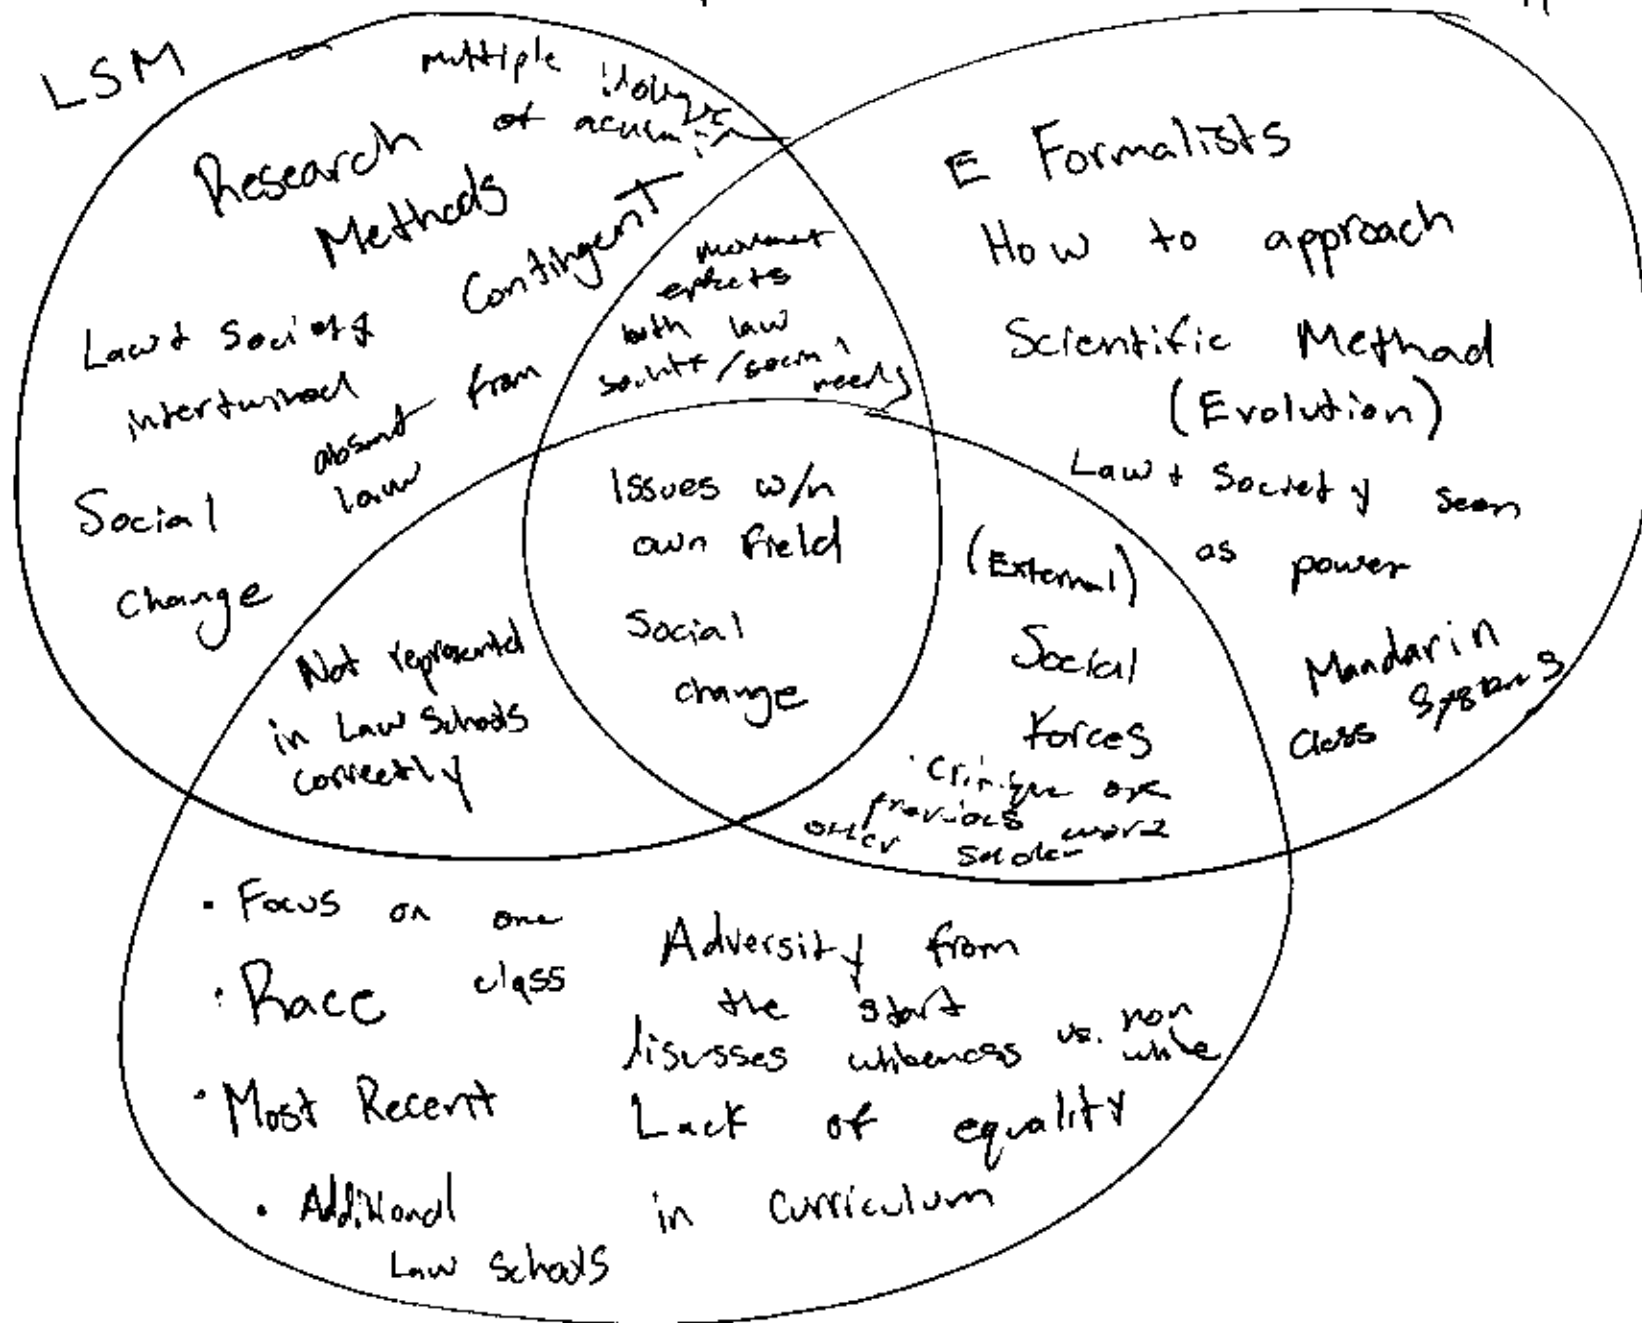 LSM
multiple
of
Research
Methods
Contingent
Law + Society
intertwined
absent from
law
Social
Change
movement
effects
both law
/social
needs
E Formalists
How to approach
Scientific Method
(Evolution)
Law + Society seen
as power
Mandarin
class systems
Issues w/n
own field
Social
change
Not represented
in Law Schools
correctly
(External)
Social
forces
· Critique of
previous work
other
· Focus on one
class
· Race
· Most Recent
· Additional
Law schools
Adversity from
the start
discusses whiteness vs. non
white
Lack of equality
in curriculum